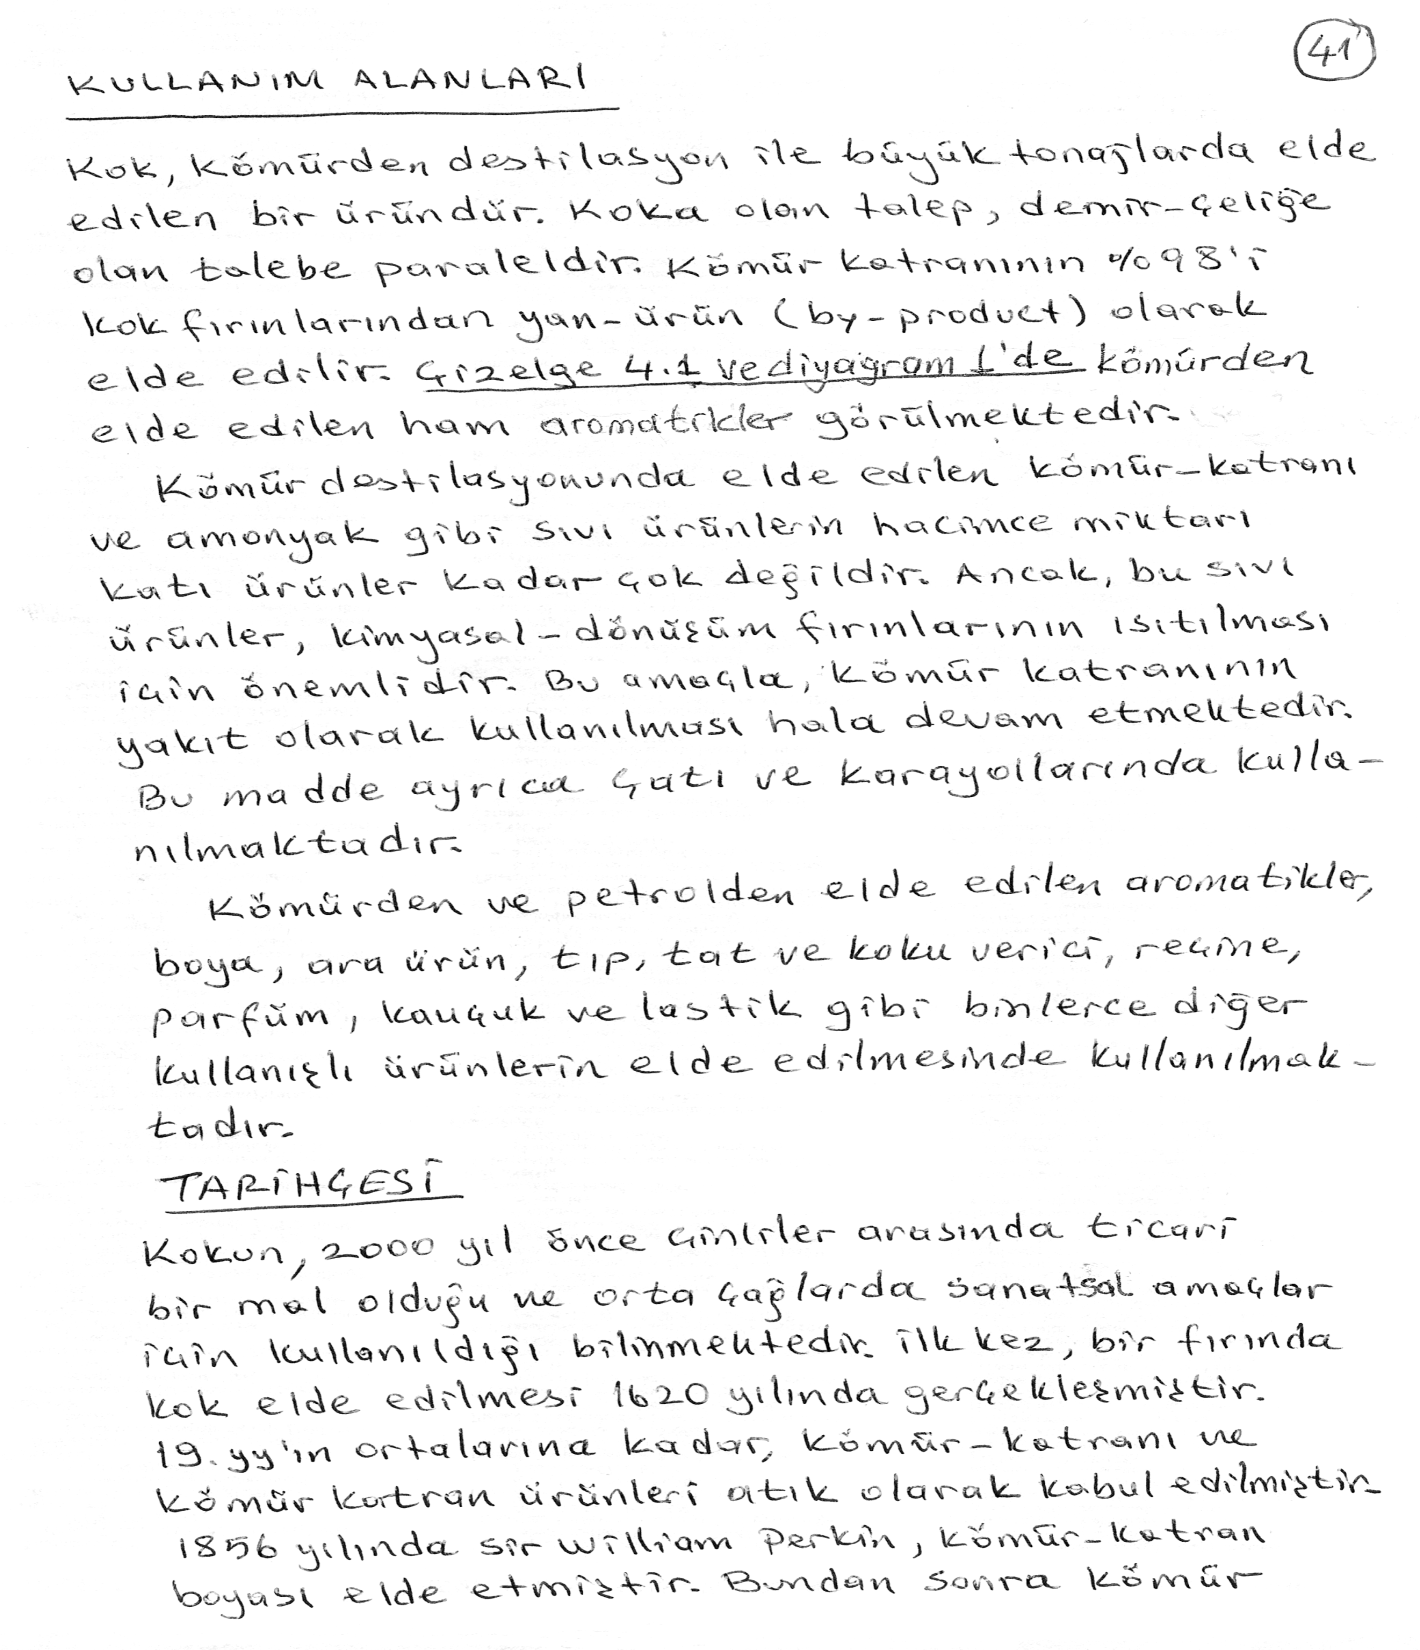 41
KULLANIM ALANLARI
Kok, kömürden destilasyon ile büyük tonajlarda elde
edilen bir üründür. Koka olan talep, demir-çeliğe
olan talebe paraleldir. Kömür katranının %98'i
kok fırınlarından yan-ürün (by-product) olarak
elde edilir. Çizelge 4.1 ve diyagram 1'de kömürden
elde edilen ham aromatikler görülmektedir.
Kömür destilasyonunda elde edilen kömür-katranı
ve amonyak gibi sıvı ürünlerin hacimce miktarı
katı ürünler kadar çok değildir. Ancak, bu sıvı
ürünler, kimyasal-dönüşüm fırınlarının ısıtılması
için önemlidir. Bu amaçla, kömür katranının
yakıt olarak kullanılması hala devam etmektedir.
Bu madde ayrıca çatı ve karayollarında kulla-
nılmaktadır.
Kömürden ve petrolden elde edilen aromatikler,
boya, ara ürün, tıp, tat ve koku verici, reçine,
parfüm, kauçuk ve lastik gibi binlerce diğer
kullanışlı ürünlerin elde edilmesinde kullanılmak-
tadır.
TARİHÇESİ
Kokun, 2000 yıl önce Çinliler arasında ticari
bir mal olduğu ve orta çağlarda sanatsal amaçlar
için kullanıldığı bilinmektedir. İlk kez, bir fırında
kok elde edilmesi 1620 yılında gerçekleşmiştir.
19. yy'ın ortalarına kadar, kömür-katranı ve
kömür katran ürünleri atık olarak kabul edilmiştir.
1856 yılında sir William Perkin, kömür-katran
boyası elde etmiştir. Bundan sonra kömür